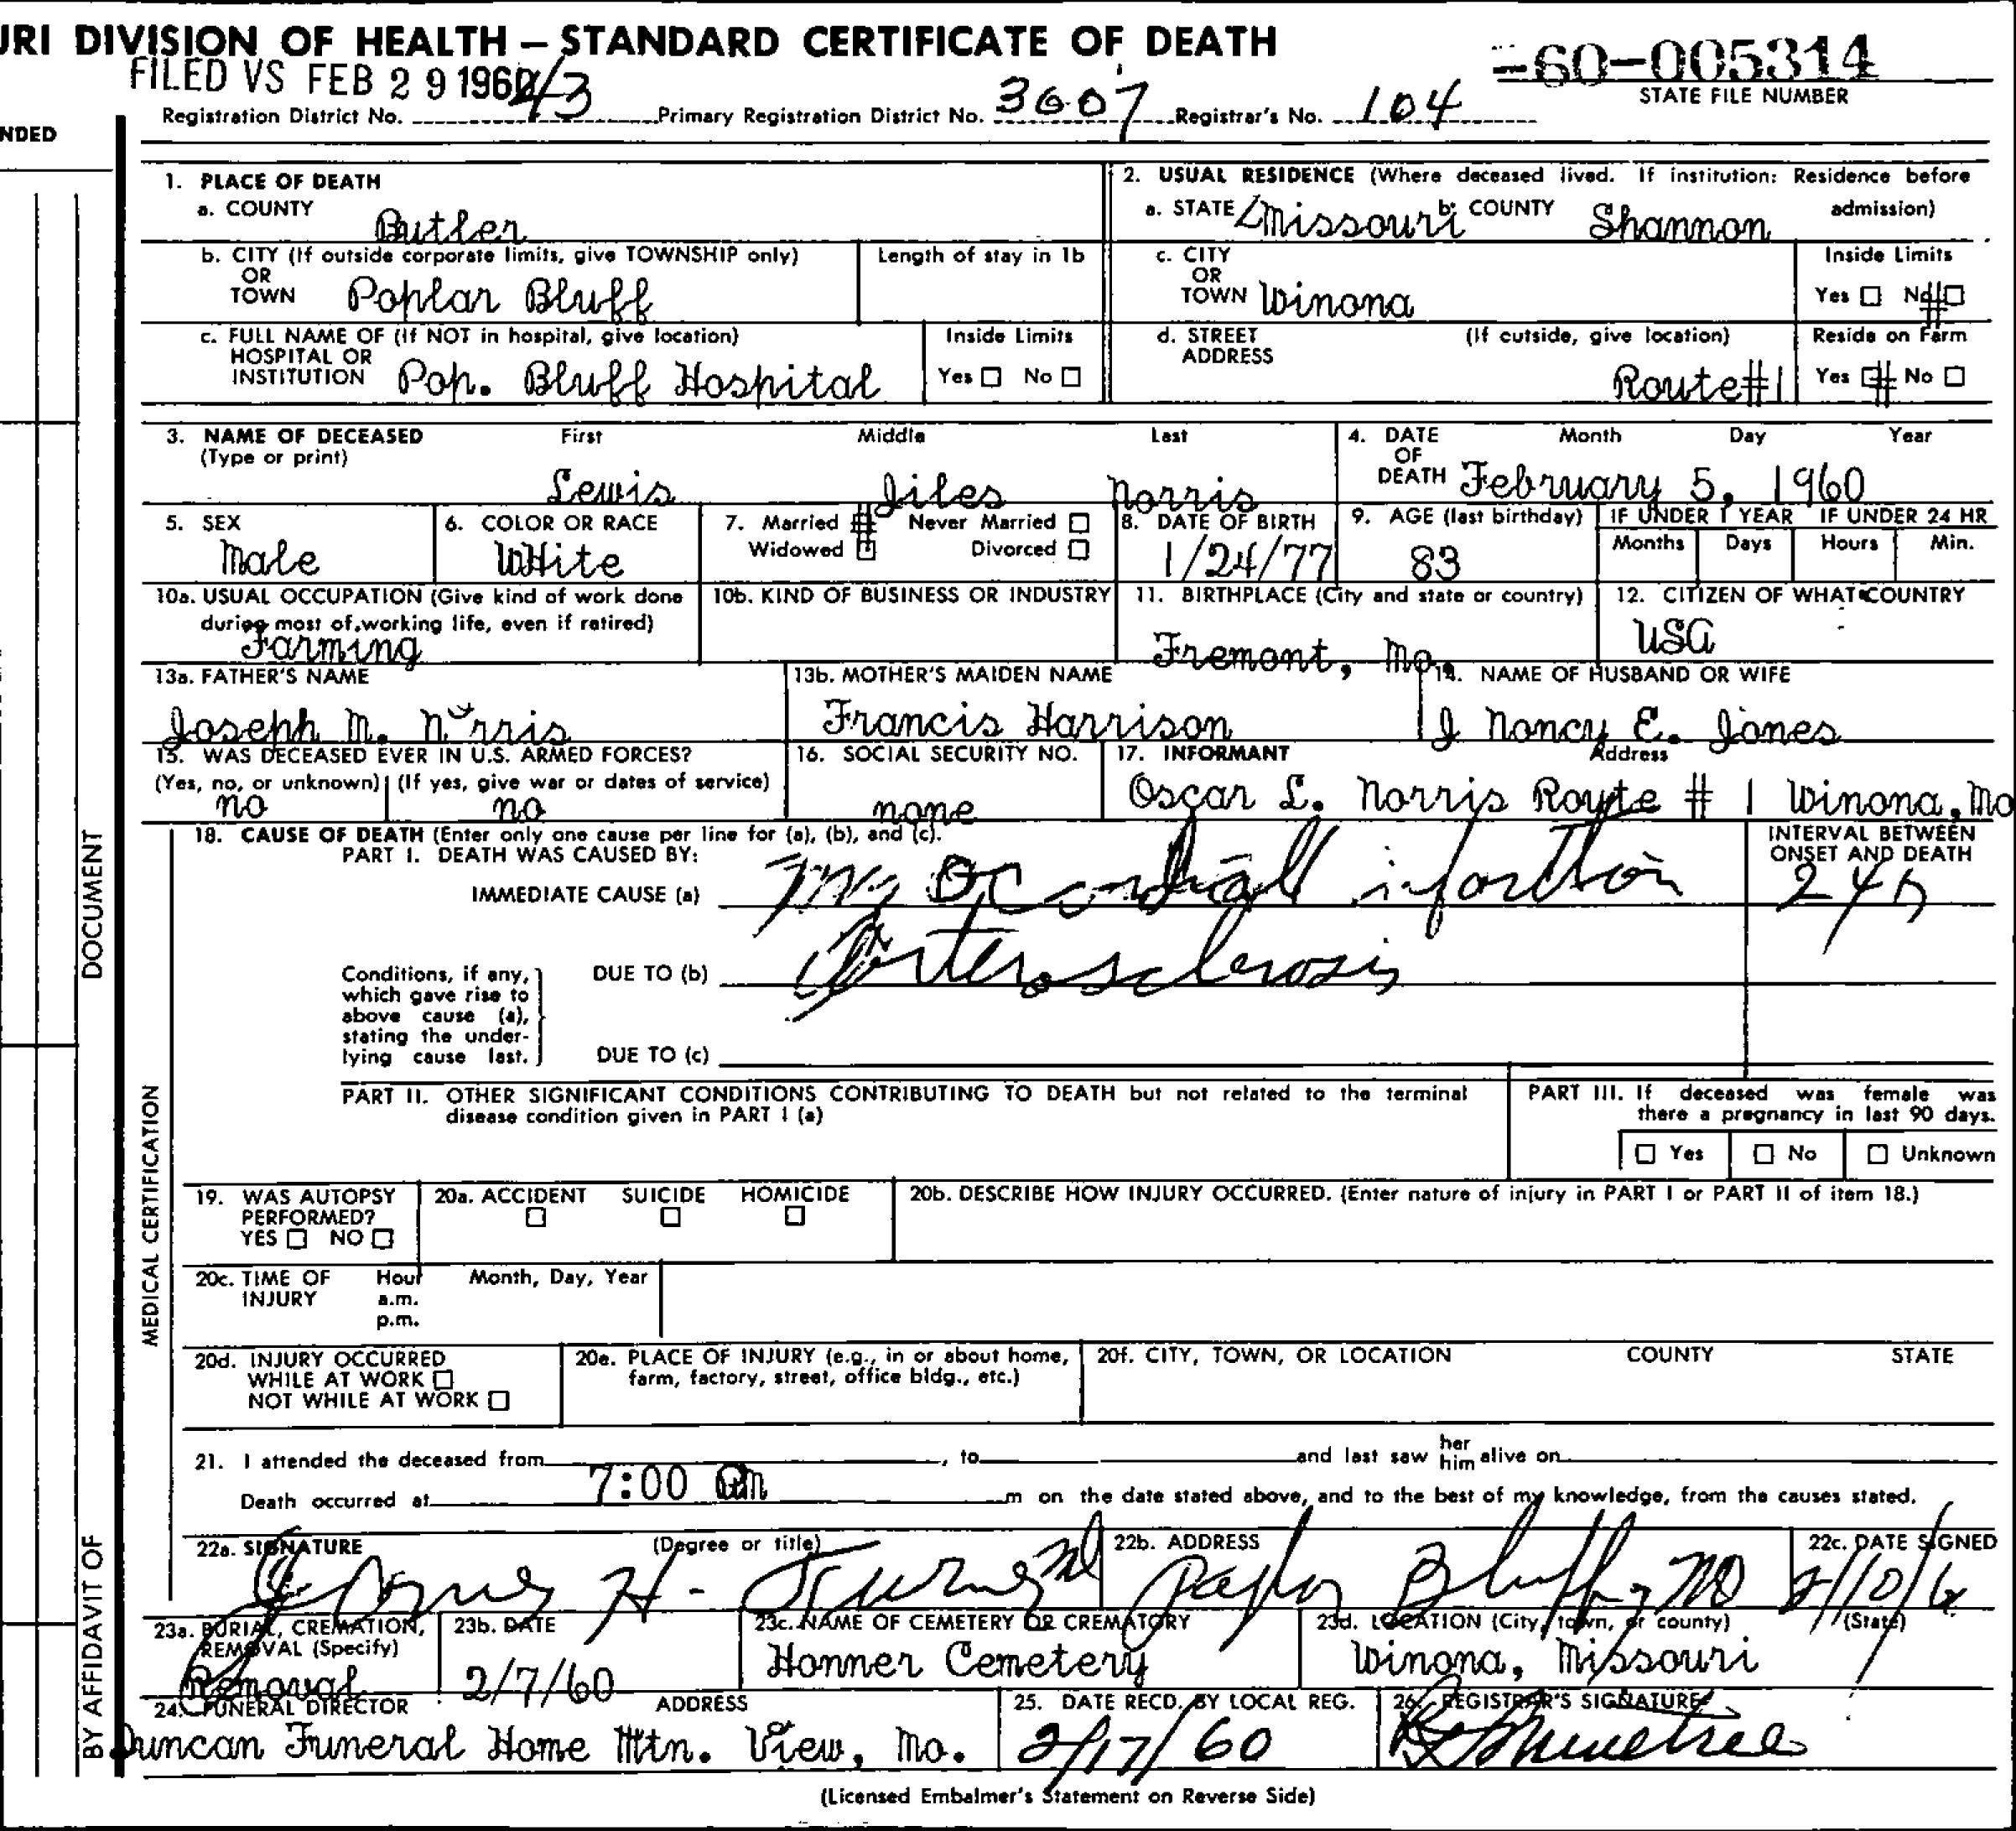 URI DIVISION OF HEALTH — STANDARD CERTIFICATE OF DEATH
FILED VS FEB 29 1960
-60-005314
STATE FILE NUMBER
Registration District No. 43 Primary Registration District No. 3607 Registrar's No. 104
NDED
1. PLACE OF DEATH
a. COUNTY Butler
2. USUAL RESIDENCE (Where deceased lived. If institution: Residence before admission)
a. STATE Missouri b. COUNTY Shannon
b. CITY (If outside corporate limits, give TOWNSHIP only) OR TOWN Poplar Bluff
Length of stay in 1b
c. CITY OR TOWN Winona
Inside Limits
Yes □ No #□
c. FULL NAME OF (If NOT in hospital, give location) HOSPITAL OR INSTITUTION Pop. Bluff Hospital
Inside Limits
Yes □ No □
d. STREET ADDRESS (If outside, give location)
Route#1
Reside on Farm
Yes □# No □
3. NAME OF DECEASED (Type or print)
First Middle Last
Lewis Jiles Norris
4. DATE OF DEATH Month Day Year
February 5, 1960
5. SEX
Male
6. COLOR OR RACE
WHite
7. Married # Never Married □
Widowed □ Divorced □
8. DATE OF BIRTH
1/24/77
9. AGE (last birthday)
83
IF UNDER 1 YEAR IF UNDER 24 HR
Months Days Hours Min.
10a. USUAL OCCUPATION (Give kind of work done during most of working life, even if retired)
Farming
10b. KIND OF BUSINESS OR INDUSTRY
11. BIRTHPLACE (City and state or country)
Fremont, Mo.
12. CITIZEN OF WHAT COUNTRY
USA
13a. FATHER'S NAME
Joseph M. Norris
13b. MOTHER'S MAIDEN NAME
Francis Harrison
14. NAME OF HUSBAND OR WIFE
J Nancy E. Jones
15. WAS DECEASED EVER IN U.S. ARMED FORCES?
(Yes, no, or unknown) (If yes, give war or dates of service)
no no
16. SOCIAL SECURITY NO.
none
17. INFORMANT Address
Oscar L. Norris Route # 1 Winona, Mo
18. CAUSE OF DEATH (Enter only one cause per line for (a), (b), and (c).
PART I. DEATH WAS CAUSED BY:
INTERVAL BETWEEN ONSET AND DEATH
IMMEDIATE CAUSE (a) Myocardial infarction
24h
Conditions, if any, which gave rise to above cause (a), stating the underlying cause last.
DUE TO (b) Arterosclerosis
DUE TO (c)
PART II. OTHER SIGNIFICANT CONDITIONS CONTRIBUTING TO DEATH but not related to the terminal disease condition given in PART I (a)
PART III. If deceased was female was there a pregnancy in last 90 days.
□ Yes □ No □ Unknown
19. WAS AUTOPSY PERFORMED?
YES □ NO □
20a. ACCIDENT SUICIDE HOMICIDE
□ □ □
20b. DESCRIBE HOW INJURY OCCURRED. (Enter nature of injury in PART I or PART II of item 18.)
20c. TIME OF INJURY
Hour a.m. p.m.
Month, Day, Year
20d. INJURY OCCURRED
WHILE AT WORK □
NOT WHILE AT WORK □
20e. PLACE OF INJURY (e.g., in or about home, farm, factory, street, office bldg., etc.)
20f. CITY, TOWN, OR LOCATION COUNTY STATE
21. I attended the deceased from , to and last saw her him alive on
Death occurred at 7:00 m on the date stated above, and to the best of my knowledge, from the causes stated.
22a. SIGNATURE (Degree or title)
H. Turner MD
22b. ADDRESS
Poplar Bluff, Mo
22c. DATE SIGNED
2/10/6
23a. BURIAL, CREMATION, REMOVAL (Specify)
Removal
23b. DATE
2/7/60
23c. NAME OF CEMETERY OR CREMATORY
Honner Cemetery
23d. LOCATION (City, town, or county) (State)
Winona, Missouri
24. FUNERAL DIRECTOR ADDRESS
Duncan Funeral Home Mtn. View, Mo.
25. DATE RECD. BY LOCAL REG.
2/17/60
26. REGISTRAR'S SIGNATURE
(Licensed Embalmer's Statement on Reverse Side)
DOCUMENT
BY AFFIDAVIT OF
MEDICAL CERTIFICATION